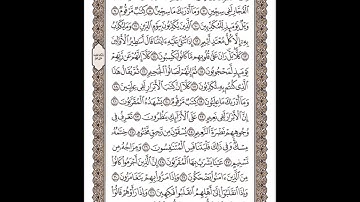 ٱلْفُجَّارِ لَفِى سِجِّينٍ ٧ وَمَآ أَدْرَىٰكَ مَا سِجِّينٌ ٨ كِتَٰبٌ مَّرْقُومٌ ٩
وَيْلٌ يَوْمَئِذٍ لِّلْمُكَذِّبِينَ ١٠ ٱلَّذِينَ يُكَذِّبُونَ بِيَوْمِ ٱلدِّينِ ١١ وَمَا يُكَذِّبُ
بِهِۦٓ إِلَّا كُلُّ مُعْتَدٍ أَثِيمٍ ١٢ إِذَا تُتْلَىٰ عَلَيْهِ ءَايَٰتُنَا قَالَ أَسَٰطِيرُ ٱلْأَوَّلِينَ ١٣
كَلَّا بَلْ رَانَ عَلَىٰ قُلُوبِهِم مَّا كَانُوا۟ يَكْسِبُونَ ١٤ كَلَّآ إِنَّهُمْ عَن رَّبِّهِمْ
يَوْمَئِذٍ لَّمَحْجُوبُونَ ١٥ ثُمَّ إِنَّهُمْ لَصَالُوا۟ ٱلْجَحِيمِ ١٦ ثُمَّ يُقَالُ هَٰذَا
ٱلَّذِى كُنتُم بِهِۦ تُكَذِّبُونَ ١٧ كَلَّآ إِنَّ كِتَٰبَ ٱلْأَبْرَارِ لَفِى عِلِّيِّينَ ١٨
وَمَآ أَدْرَىٰكَ مَا عِلِّيُّونَ ١٩ كِتَٰبٌ مَّرْقُومٌ ٢٠ يَشْهَدُهُ ٱلْمُقَرَّبُونَ ٢١
إِنَّ ٱلْأَبْرَارَ لَفِى نَعِيمٍ ٢٢ عَلَى ٱلْأَرَآئِكِ يَنظُرُونَ ٢٣ تَعْرِفُ فِى
وُجُوهِهِمْ نَضْرَةَ ٱلنَّعِيمِ ٢٤ يُسْقَوْنَ مِن رَّحِيقٍ مَّخْتُومٍ ٢٥ خِتَٰمُهُۥ
مِسْكٌ وَفِى ذَٰلِكَ فَلْيَتَنَافَسِ ٱلْمُتَنَٰفِسُونَ ٢٦ وَمِزَاجُهُۥ مِن
تَسْنِيمٍ ٢٧ عَيْنًا يَشْرَبُ بِهَا ٱلْمُقَرَّبُونَ ٢٨ إِنَّ ٱلَّذِينَ أَجْرَمُوا۟ كَانُوا۟
مِنَ ٱلَّذِينَ ءَامَنُوا۟ يَضْحَكُونَ ٢٩ وَإِذَا مَرُّوا۟ بِهِمْ يَتَغَامَزُونَ ٣٠
وَإِذَا ٱنقَلَبُوٓا۟ إِلَىٰٓ أَهْلِهِمُ ٱنقَلَبُوا۟ فَكِهِينَ ٣١ وَإِذَا رَأَوْهُمْ قَالُوٓا۟